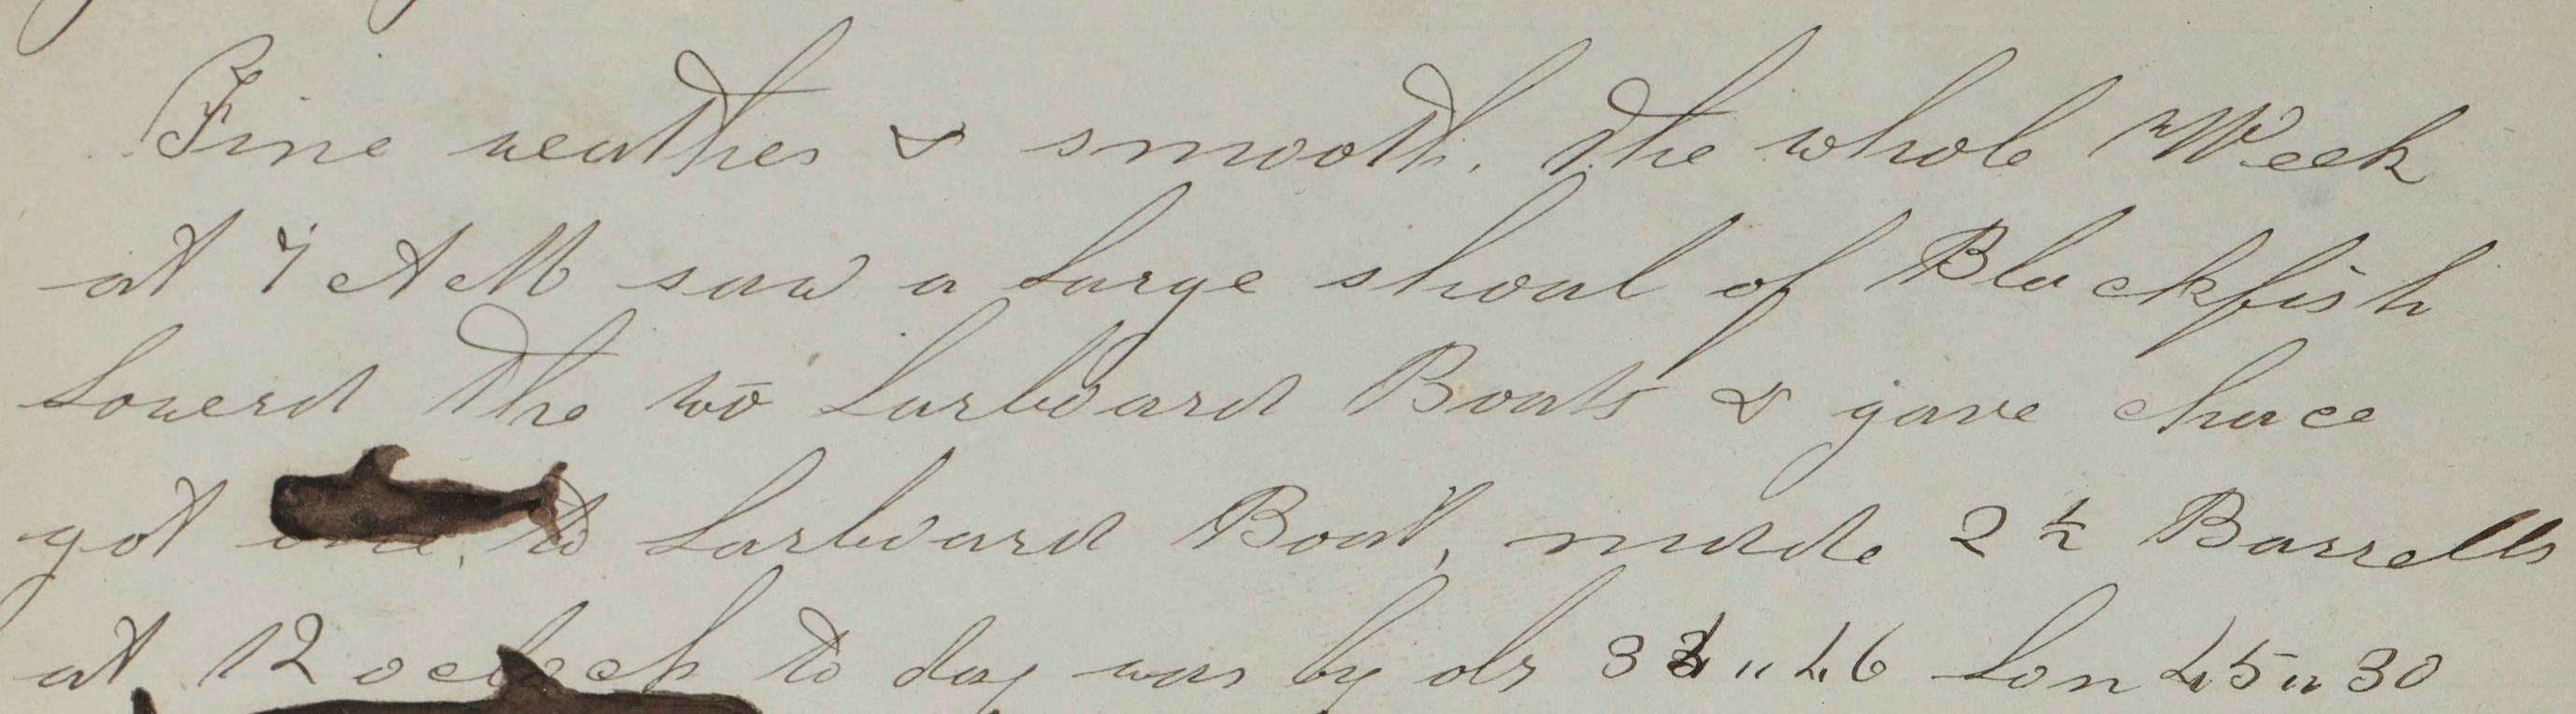 Fine weather & smooth, the whole Week
at 7 AM saw a large shoal of Blackfish
Lowerd the two Larboard Boats & gave chace
got one, to Larboard Boat, made 2 ½ Barrells
at 12 oclock to day was by obs 34 " 46 Lon 45 " 30